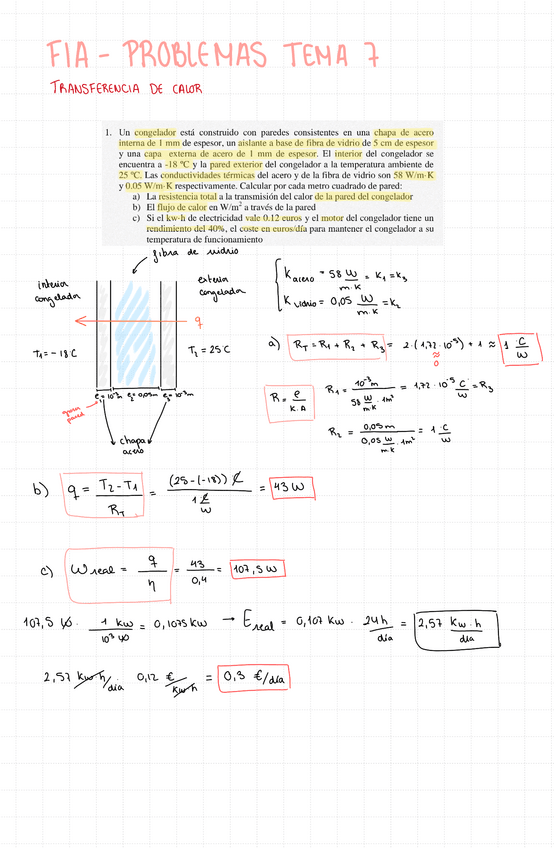 FIA - PROBLEMAS TEMA 7
TRANSFERENCIA DE CALOR
1. Un congelador está construido con paredes consistentes en una chapa de acero
interna de 1 mm de espesor, un aislante a base de fibra de vidrio de 5 cm de espesor
y una capa externa de acero de 1 mm de espesor. El interior del congelador se
encuentra a -18 ºC y la pared exterior del congelador a la temperatura ambiente de
25 ºC. Las conductividades térmicas del acero y de la fibra de vidrio son 58 W/m·K
y 0.05 W/m·K respectivamente. Calcular por cada metro cuadrado de pared:
a) La resistencia total a la transmisión del calor de la pared del congelador
b) El flujo de calor en W/m² a través de la pared
c) Si el kw-h de electricidad vale 0.12 euros y el motor del congelador tiene un
rendimiento del 40%, el coste en euros/día para mantener el congelador a su
temperatura de funcionamiento
fibra de vidrio
interior congelador
exterior congelador
q
T₁ = -18ºC
T₂ = 25ºC
e₁ = 10⁻³m e₂ = 0,05m e₃ = 10⁻³m
grosor pared
chapa acero
K acero = 58 W/m·K = K₁ = K₃
K vidrio = 0,05 W/m·K = K₂
a) R_T = R₁ + R₂ + R₃ = 2·(1,72·10⁻⁵) + 1 ≈ 1 ºC/W
≈ 0
R = e/K·A
R₁ = 10⁻³m / 58 W/m·K · 1m² = 1,72·10⁻⁵ ºC/W = R₃
R₂ = 0,05m / 0,05 W/m·K · 1m² = 1 ºC/W
b) q = T₂ - T₁ / R_T = (25 - (-18)) ºC / 1 ºC/W = 43 W
c) W real = q/η = 43/0,4 = 107,5 W
107,5 W · 1 kW / 10³ W = 0,1075 kW → E real = 0,107 kW · 24h/día = 2,57 kW·h/día
2,57 kW·h/día 0,12 €/kW·h = 0,3 €/día